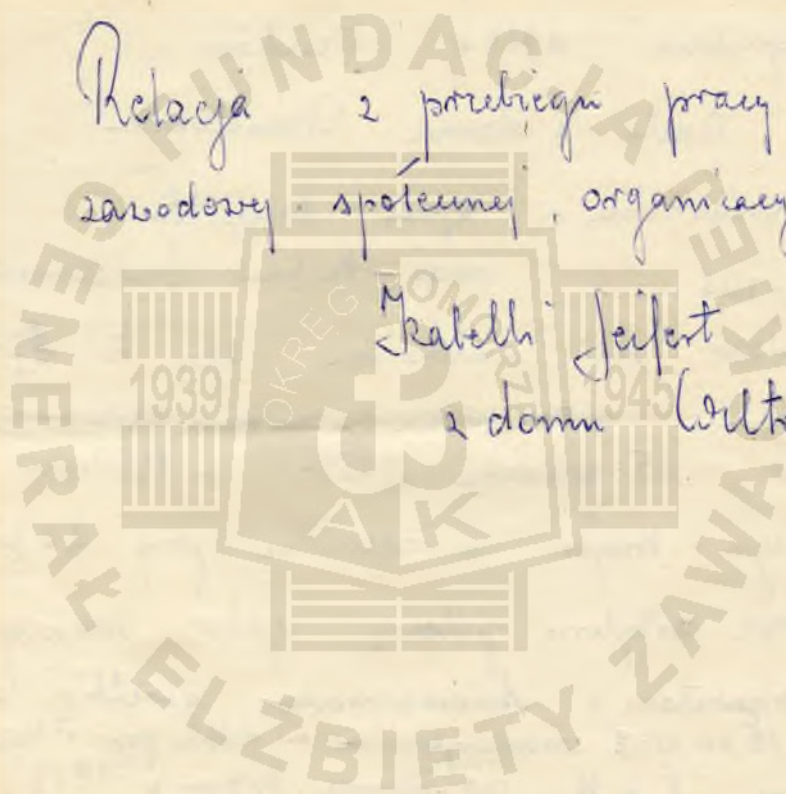 Relacja z przebiegu pracy
zawodowej społecznej, organizacy
Izabelli Seifert
z domu
FUNDACJA
GENERAŁ ELŻBIETY ZAWACKIEJ
OKRĘG POMORZE
1939 1945
AK